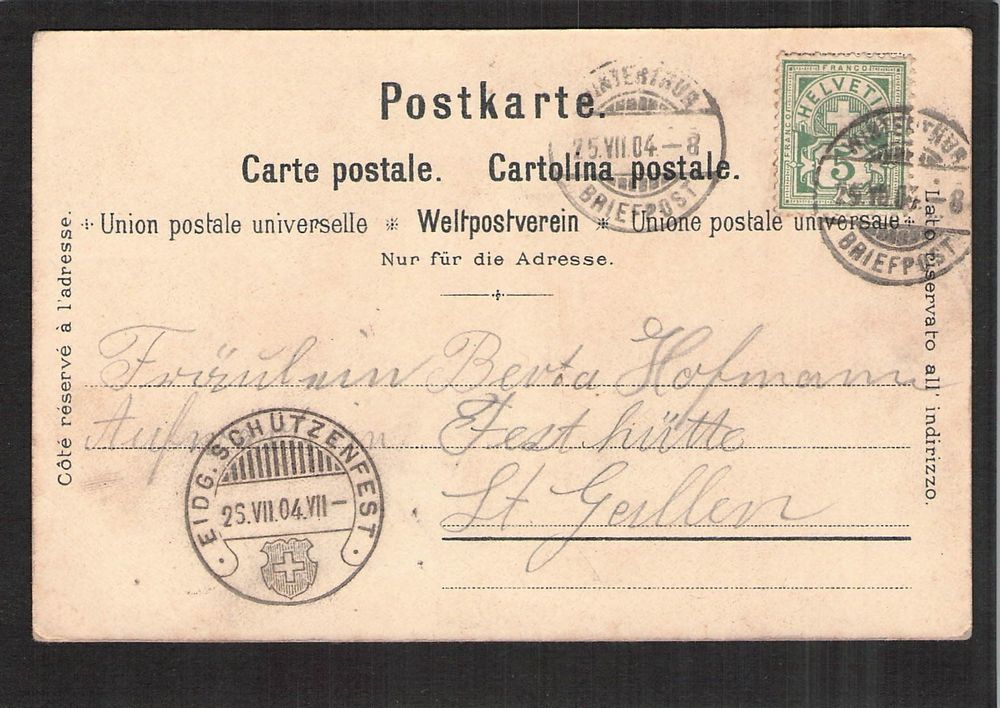 Postkarte.
Carte postale. Cartolina postale.
Union postale universelle * Weltpostverein * Unione postale universale
Nur für die Adresse.
Côté réservé à l'adresse.
Lato riservato all' indirizzo.
FRANCO
HELVETIA
FRANCO
5
WINTERTHUR
25.VII.04.-8
BRIEFPOST
WINTERTHUR
25.VII.04.-8
BRIEFPOST
Fräulein Berta Hofmann
Festhütte
St. Gallen
EIDG. SCHÜTZENFEST
25.VII.04.VII-